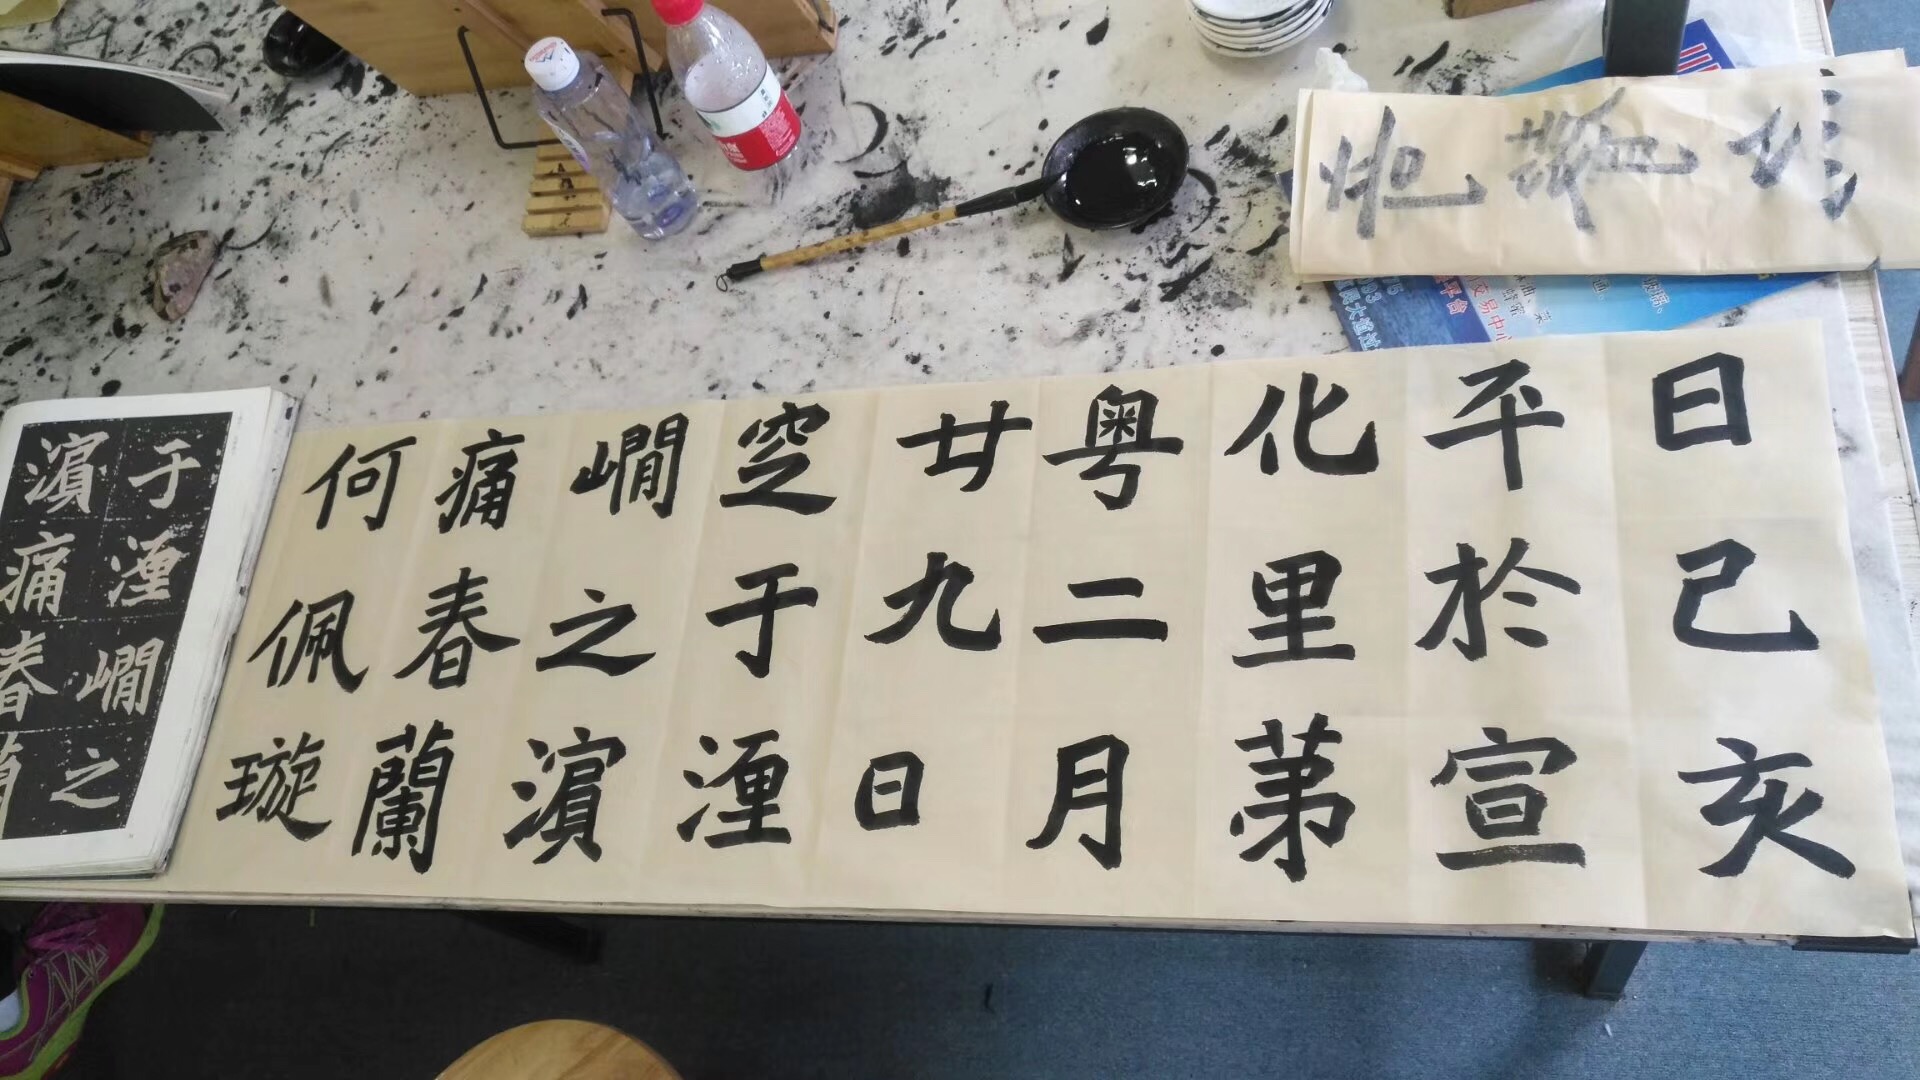 日己亥
平於宣
化里苐
粵二月
廿九日
窆于湮
㵎之濵
痛春蘭
何佩璇
于湮㵎之
濵痛春蘭